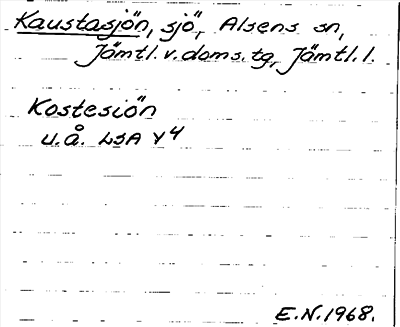 Kaustasjön, sjö, Alsens sn,
Jämtl. v. doms. tg, Jämtl. l.
Kostesiön
u.å. LSA Y4
E.N. 1968.